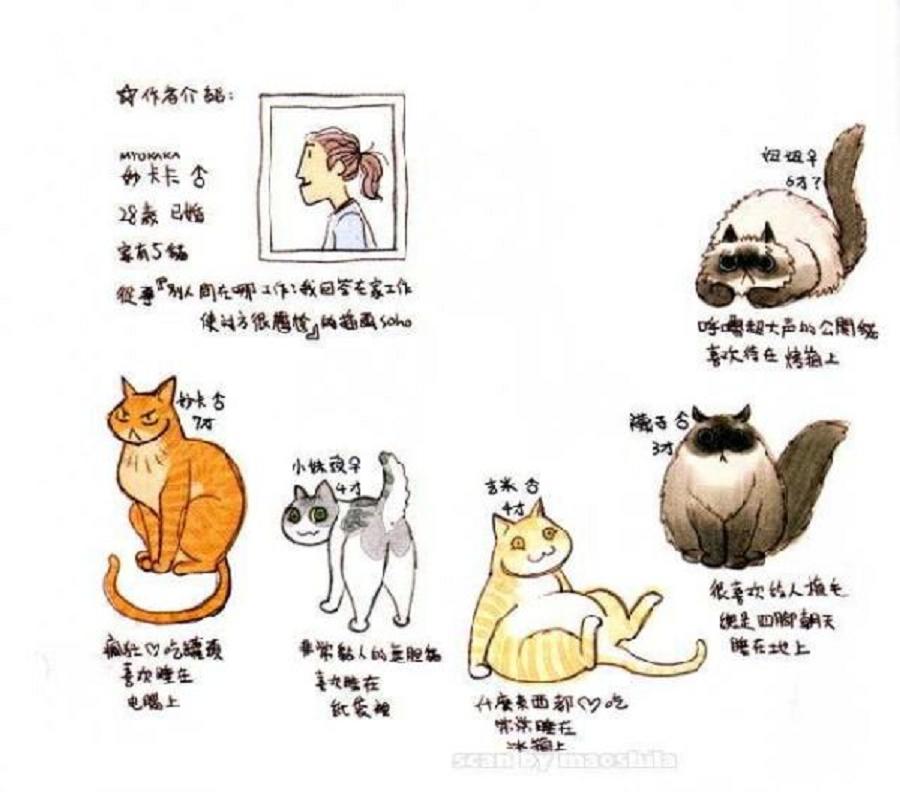 作者介紹:
MYUKAKA
妙卡卡 ♀
28歲 已婚
家有5貓
從事『別人問在哪工作?我回答在家工作
使對方很尷尬』的插畫soho
妞妞♀
6才?
呼嚕超大声的公關貓
喜欢待在 烤箱上
妙卡
7才
瘋狂♡吃罐頭
喜欢睡在
电腦上
小妹
4才
非常黏人的無胆貓
喜欢睡在
紙袋裡
玄米
4才
什麼東西都♡吃
常常睡在
冰箱上
襪子
3才
很喜欢給人梳毛
總是四腳朝天
睡在地上
scan by maoshula